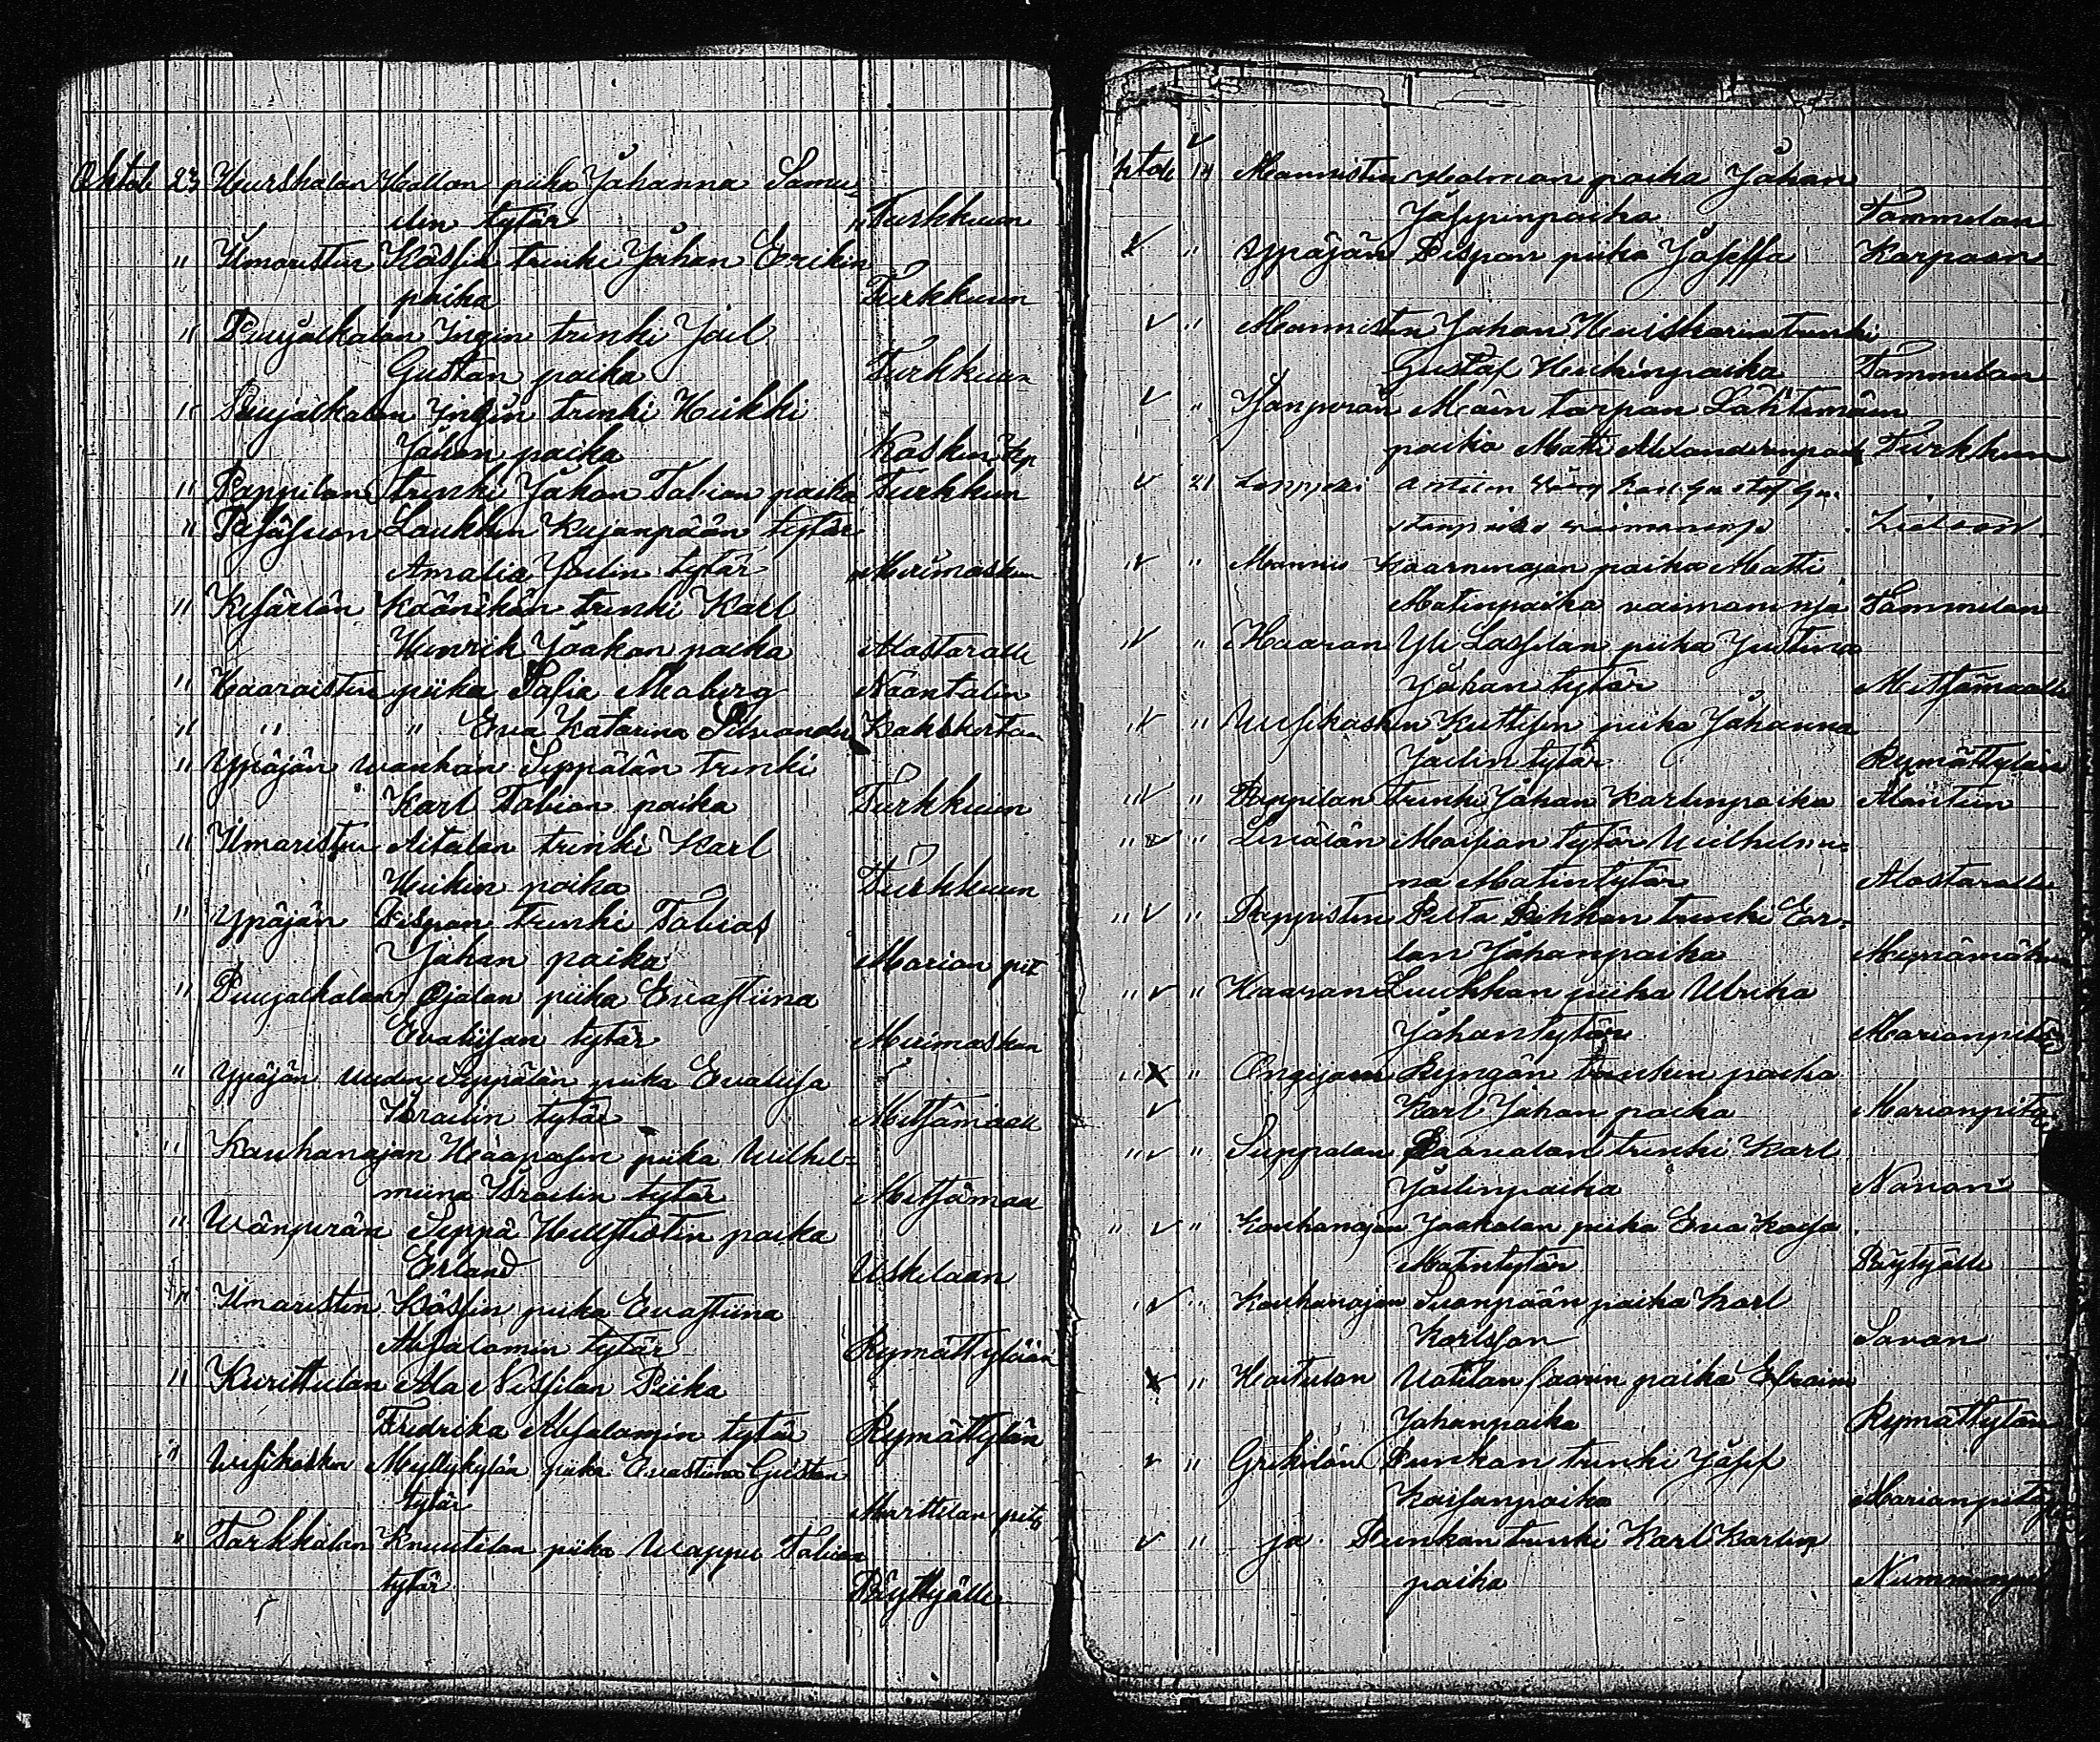 Oktob 23 Hurskalan Hallon piika Johanna Samu-
elin tytär " Turkkuun
" Ilmaristen Kässin trinki Johan Eerikin
poika Turkkuun
" Puujalkalan Yngin trinki Joel
Gustan poika Turkkuun
" Puujalkalan Yngin trinki Heikki
Johan poika Kosken Kp
" Pappilan trinki Johan Tobian poika Turkkuun
" Laukkin Kujanpään tytär
Amalia Joelin tytär Merimaskun
" Kesärlän Käänikän trinki Karl
Henrik Jaakon poika Alastaralle
" Haaroisten piika Sofia Moberg Naantalin
" " " Eva Katarina Silvander Kakskertan
" Ypäjän wanhan Seppälän trinki
Karl Tobian poika Turkkuun
" Ilmaristen Aitalan trinki Karl
Heikin poika Turkkuun
" Ypäjän Pispan trinki Tobias
Johan poika Marian pit
" Puujalkalan Ojalan piika Evastiina
Evaliisan tytär Merimaskun
" Ypäjän uuden Seppälän piika Evalisa
Israelin tytär Metsämaall
" Kauhanojan Haapasen piika Wilhel-
miina Israelin tytär Metsämaa
" Wänperän Seppä Hellstetin poika
Erland Uskelaan
" Ilmaristen Kässin piika Evastiina
Absalomin tytär Rymättylään
" Kurittulan Ala Nissilan Piika
Fredrika Absalomin tytär Rymättylän
" Uusikasken Myllykylän piika Evastiina Gustan
tytär Marttilan pit
" Tarkkalan Knuutilan piika Wappu Tobian
tytär Pöyttyälle
ktob 14 Mannisten Holman poika Johan
Josepinpoika Tammelan
" Ypäjän Pispan piika Joseffa Karpaan
" Mannisten Johan Heiskarin trinki
Gustaf Heikinpoika Tammelan
" Isonperän Mäin torpan Lähtemäin
poika Matti Alexanderinpoik Turkkuun
21
" Mannis Kaarninojan poika Matti
Matinpoika vaimoninsa Tammelan
" Haaran Yli Lassilan piika Justina
Johan tytär Metsämaalle
" Uusikasken Kuttisen piika Johanna
Joelin tytär Rymättylään
" Pappilan trinki Johan Karlinpoika Alantiin
" Levälän Maisian tytär Wilhelmi-
na Matintytär Alastaralle
" Pappisten Pelta Pikkan trinki Er-
lan Johanpoika Mynämäken
" Haaran Luukkan piika Ulrika
Johantytär Marianpitä
" Ongejoen Ryngän trinkin poika
Karl Johan poika Marianpitä
" Seppalan Paavalan trinki Karl
Joelinpoika Nauvon
" Kauhanojan Jaakolan piika Eva Kaisa
Matintytär Pöytyälle
" Kauhanojan Suonpään poika Karl
Karlsson Savon
" Haitulan Uotilan Saarin poika Efraim
Johanpoika Rymättylän
" Grekilän Punkan trinki Josef
Kaisanpoika Marianpitä
" ja Punkan trinki Karl Karlin
poika